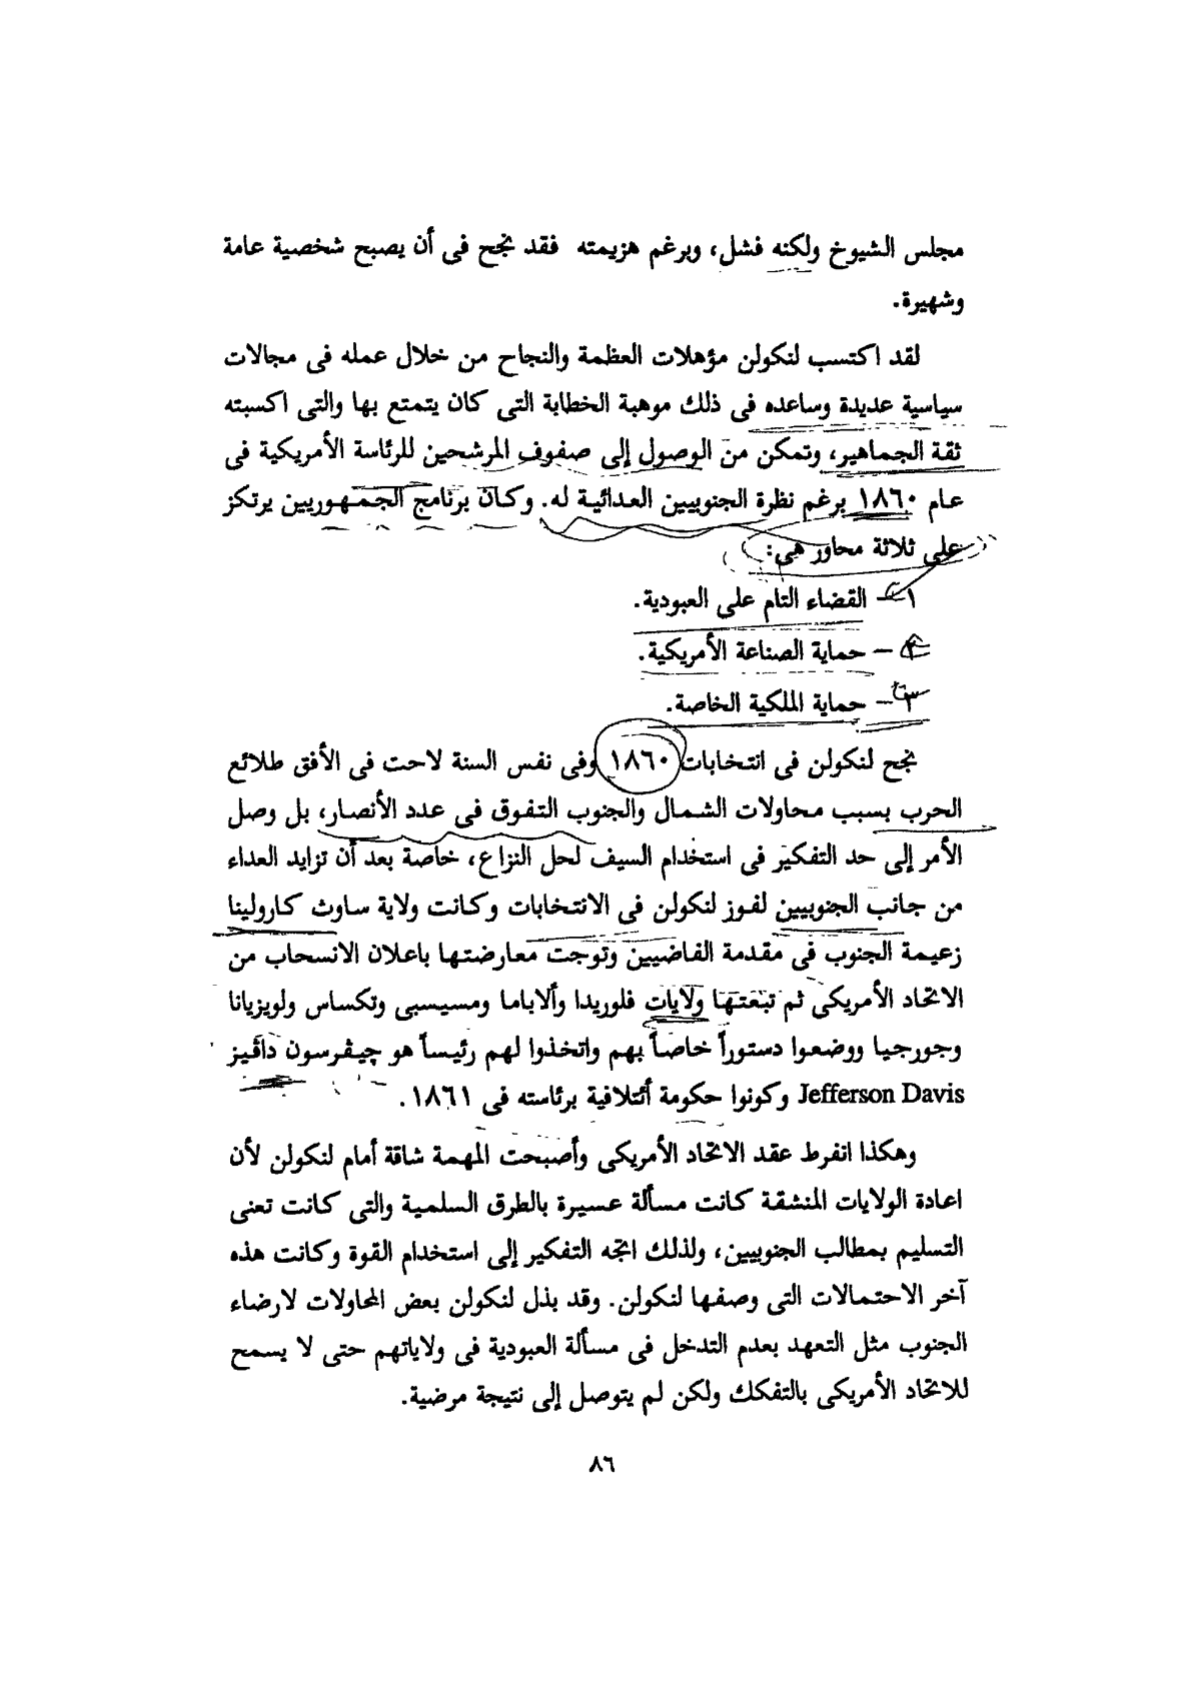 مجلس الشيوخ ولكنه فشل، وبرغم هزيمته فقد نجح فى أن يصبح شخصية عامة
وشهيرة.
لقد اكتسب لنكولن مؤهلات العظمة والنجاح من خلال عمله فى مجالات
سياسية عديدة وساعده فى ذلك موهبة الخطابة التى كان يتمتع بها والتى اكسبته
ثقة الجماهير، وتمكن من الوصول إلى صفوف المرشحين للرئاسة الأمريكية فى
عام ١٨٦٠ برغم نظرة الجنوبيين العدائية له. وكان برنامج الجمهوريين يرتكز
على ثلاثة محاور هى:
١ - القضاء التام على العبودية.
٢ - حماية الصناعة الأمريكية.
٣ - حماية الملكية الخاصة.
نجح لنكولن فى انتخابات ١٨٦٠ وفى نفس السنة لاحت فى الأفق طلائع
الحرب بسبب محاولات الشمال والجنوب التفوق فى عدد الأنصار، بل وصل
الأمر إلى حد التفكير فى استخدام السيف لحل النزاع، خاصة بعد أن تزايد العداء
من جانب الجنوبيين لفوز لنكولن فى الانتخابات وكانت ولاية ساوث كارولينا
زعيمة الجنوب فى مقدمة الفاضيين وتوجت معارضتها باعلان الانسحاب من
الاتحاد الأمريكى ثم تبعتها ولايات فلوريدا وألاباما ومسيسبى وتكساس ولويزيانا
وجورجيا ووضعوا دستوراً خاصاً بهم واتخذوا لهم رئيساً هو چيفرسون داڤيز
Jefferson Davis وكونوا حكومة أئتلافية برئاسته فى ١٨٦١.
وهكذا انفرط عقد الاتحاد الأمريكى وأصبحت المهمة شاقة أمام لنكولن لأن
اعادة الولايات المنشقة كانت مسألة عسيرة بالطرق السلمية والتى كانت تعنى
التسليم بمطالب الجنوبيين، ولذلك اتجه التفكير إلى استخدام القوة وكانت هذه
آخر الاحتمالات التى وصفها لنكولن. وقد بذل لنكولن بعض المحاولات لارضاء
الجنوب مثل التعهد بعدم التدخل فى مسألة العبودية فى ولاياتهم حتى لا يسمح
للاتحاد الأمريكى بالتفكك ولكن لم يتوصل إلى نتيجة مرضية.
٨٦